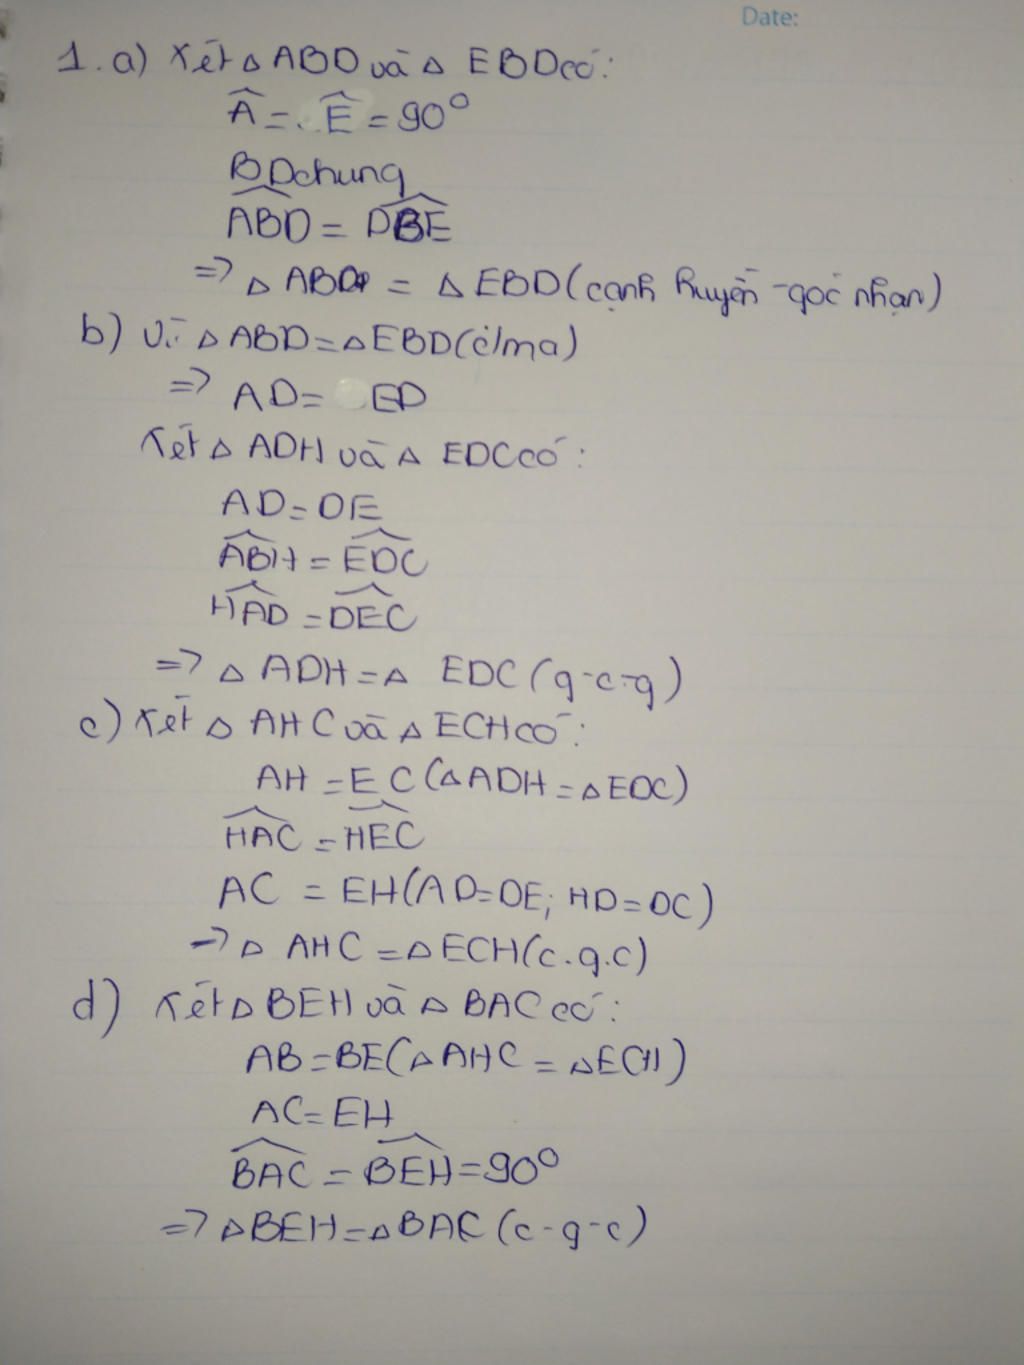 Date:
1. a) Xét △ ABD và △ EBD có:
Â = Ê = 90°
BD chung
ABD = DBE
=> △ ABD = △ EBD (cạnh huyền - góc nhọn)
b) Vì △ ABD = △ EBD (c/ma)
=> AD = ED
Xét △ ADH và △ EDC có:
AD = DE
ABH = EDC
HAD = DEC
=> △ ADH = △ EDC (g-c-g)
c) Xét △ AHC và △ ECH có:
AH = EC (△ ADH = △ EDC)
HAC = HEC
AC = EH (AD = DE; HD = DC)
=> △ AHC = △ ECH (c.g.c)
d) Xét △ BEH và △ BAC có:
AB = BE (△ AHC = △ ECH)
AC = EH
BAC = BEH = 90°
=> △ BEH = △ BAC (c-g-c)